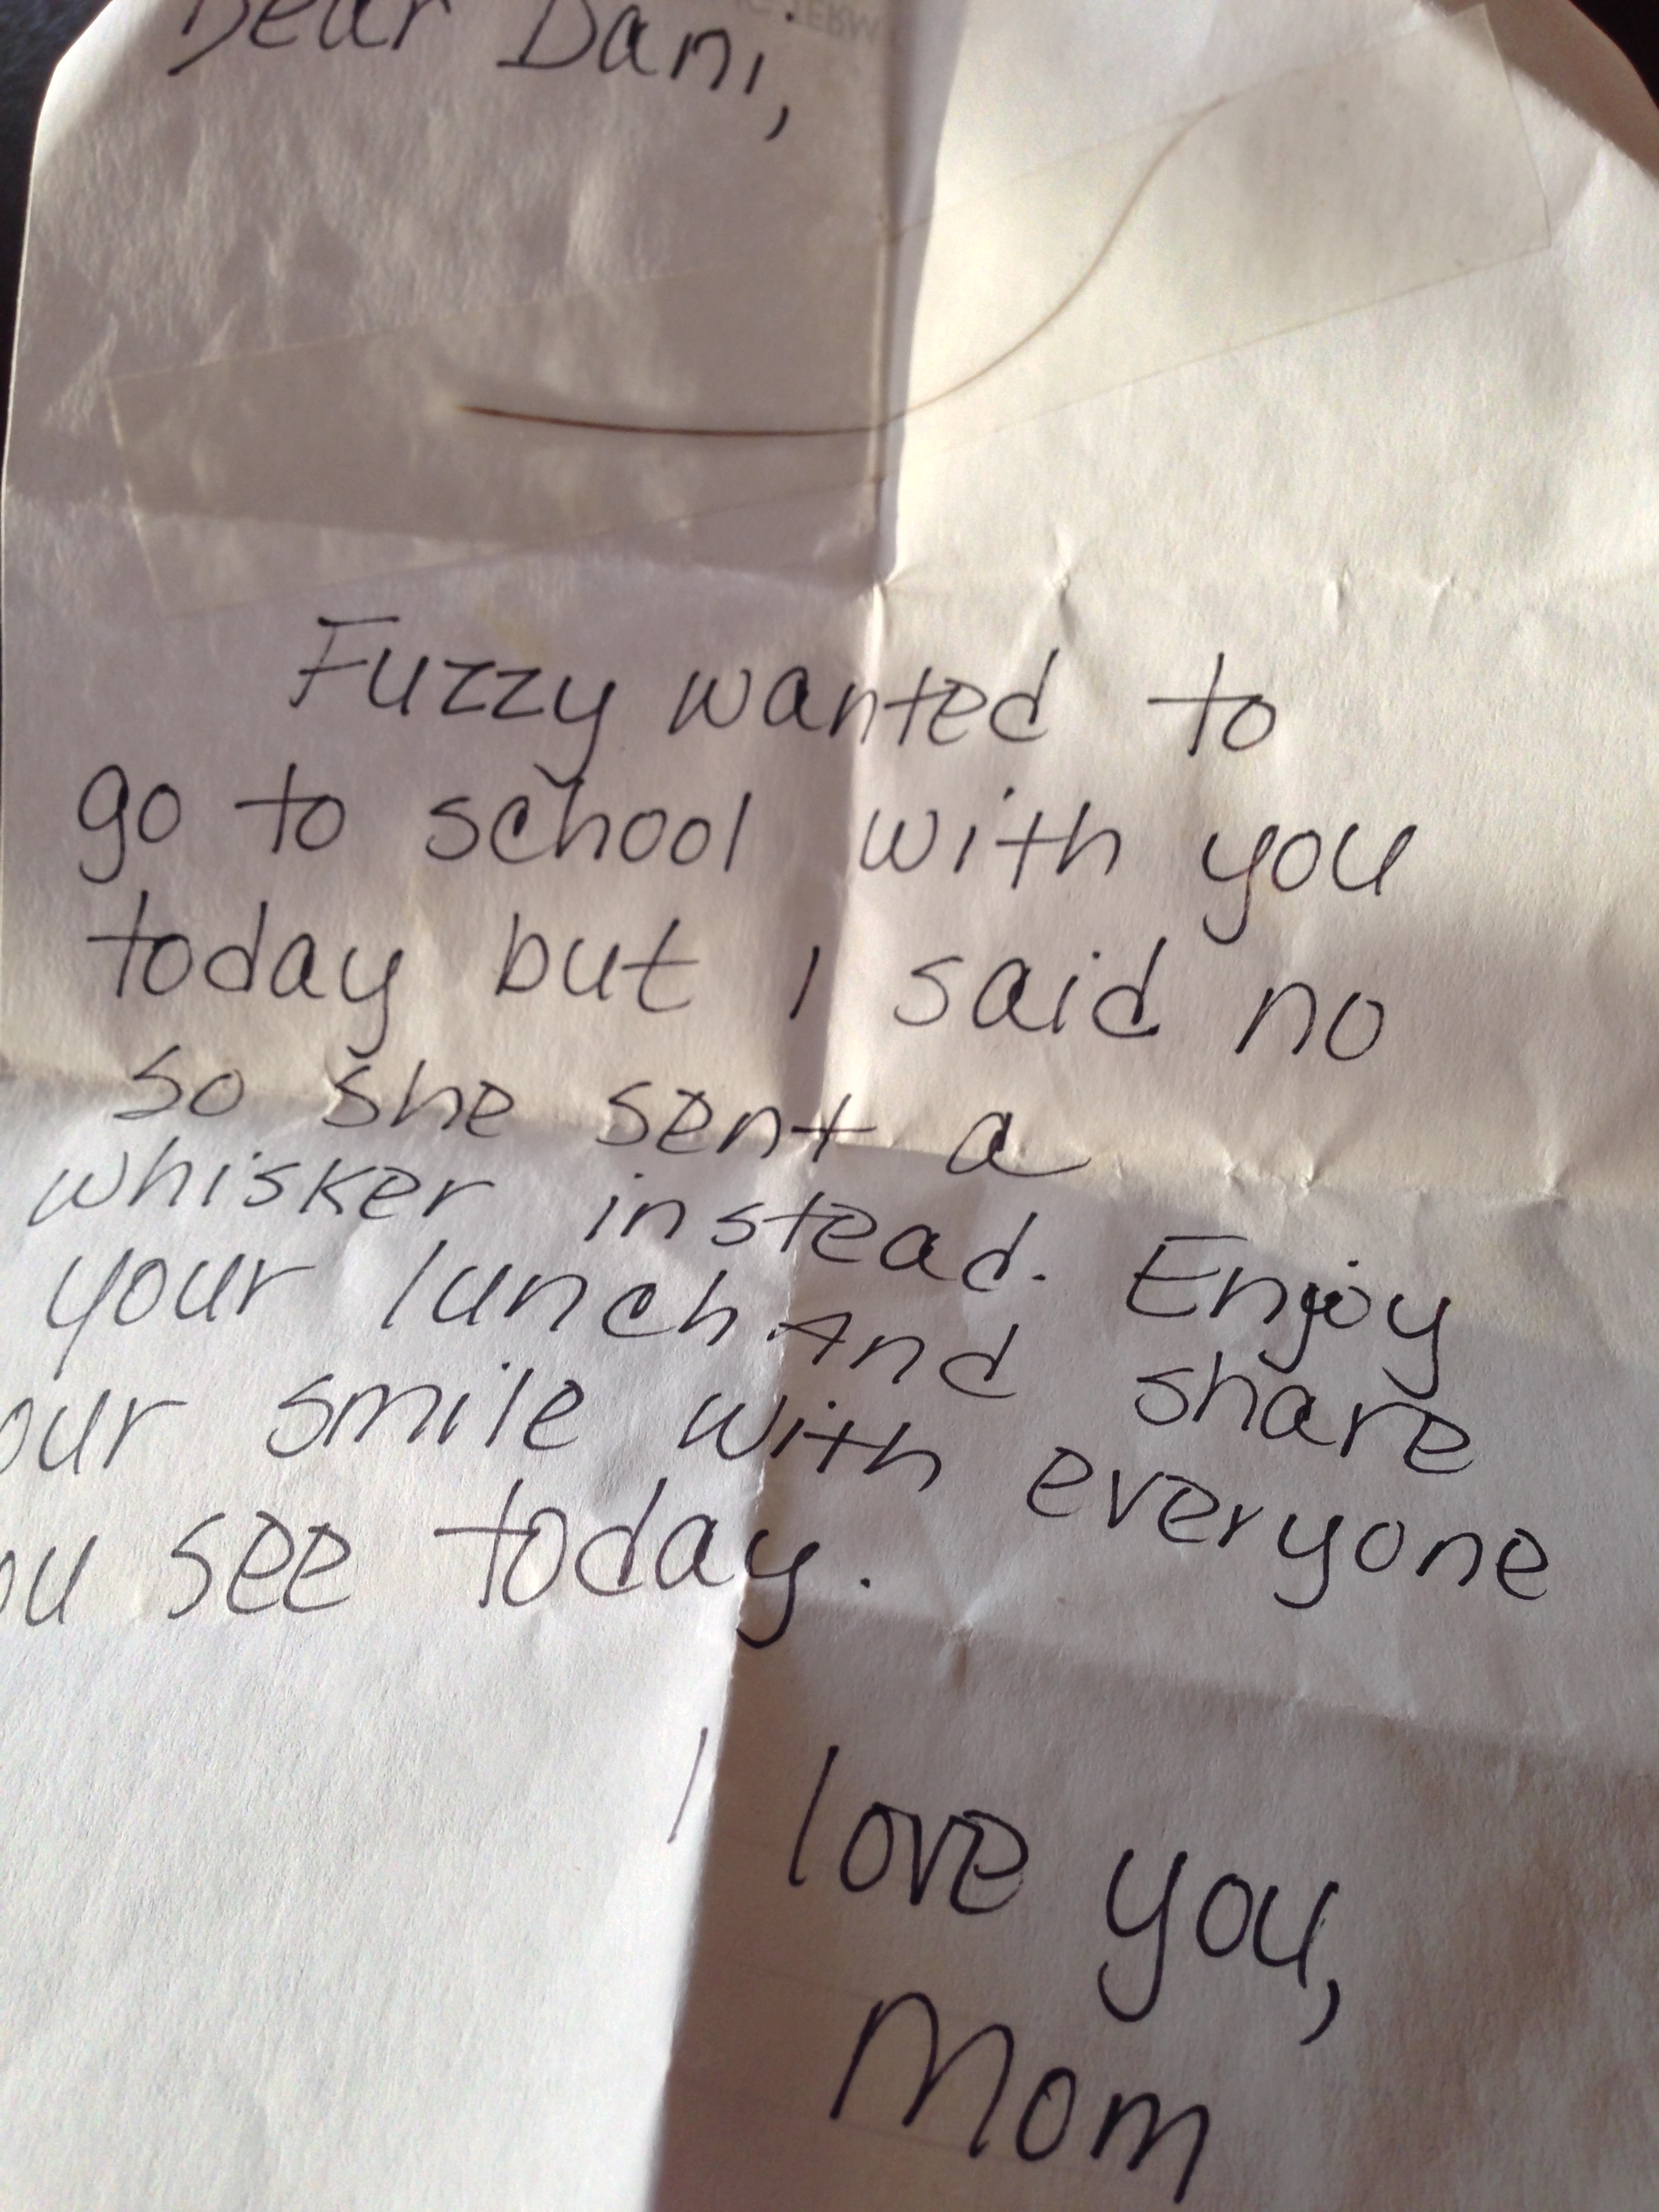 Dear Dani,
Fuzzy wanted to
go to school with you
today but I said no
so she sent a
whisker instead. Enjoy
your lunch And share
our smile with everyone
ou see today.
I love you,
Mom